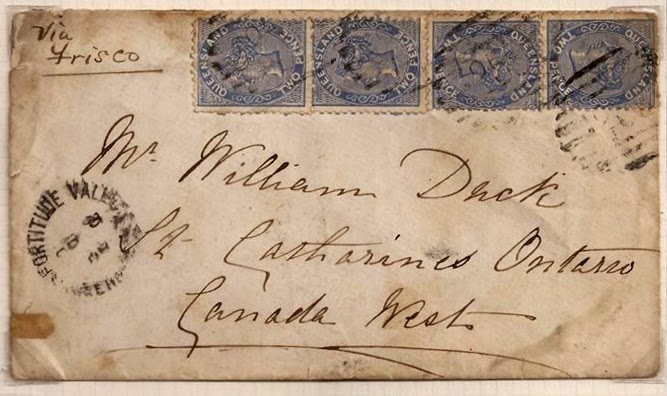 Via
Frisco
QUEENSLAND TWO PENCE
QUEENSLAND TWO PENCE
QUEENSLAND TWO PENCE
QUEENSLAND TWO PENCE
Mr. William Duck
St Catharines Ontario
Canada West
FORTITUDE VALLEY